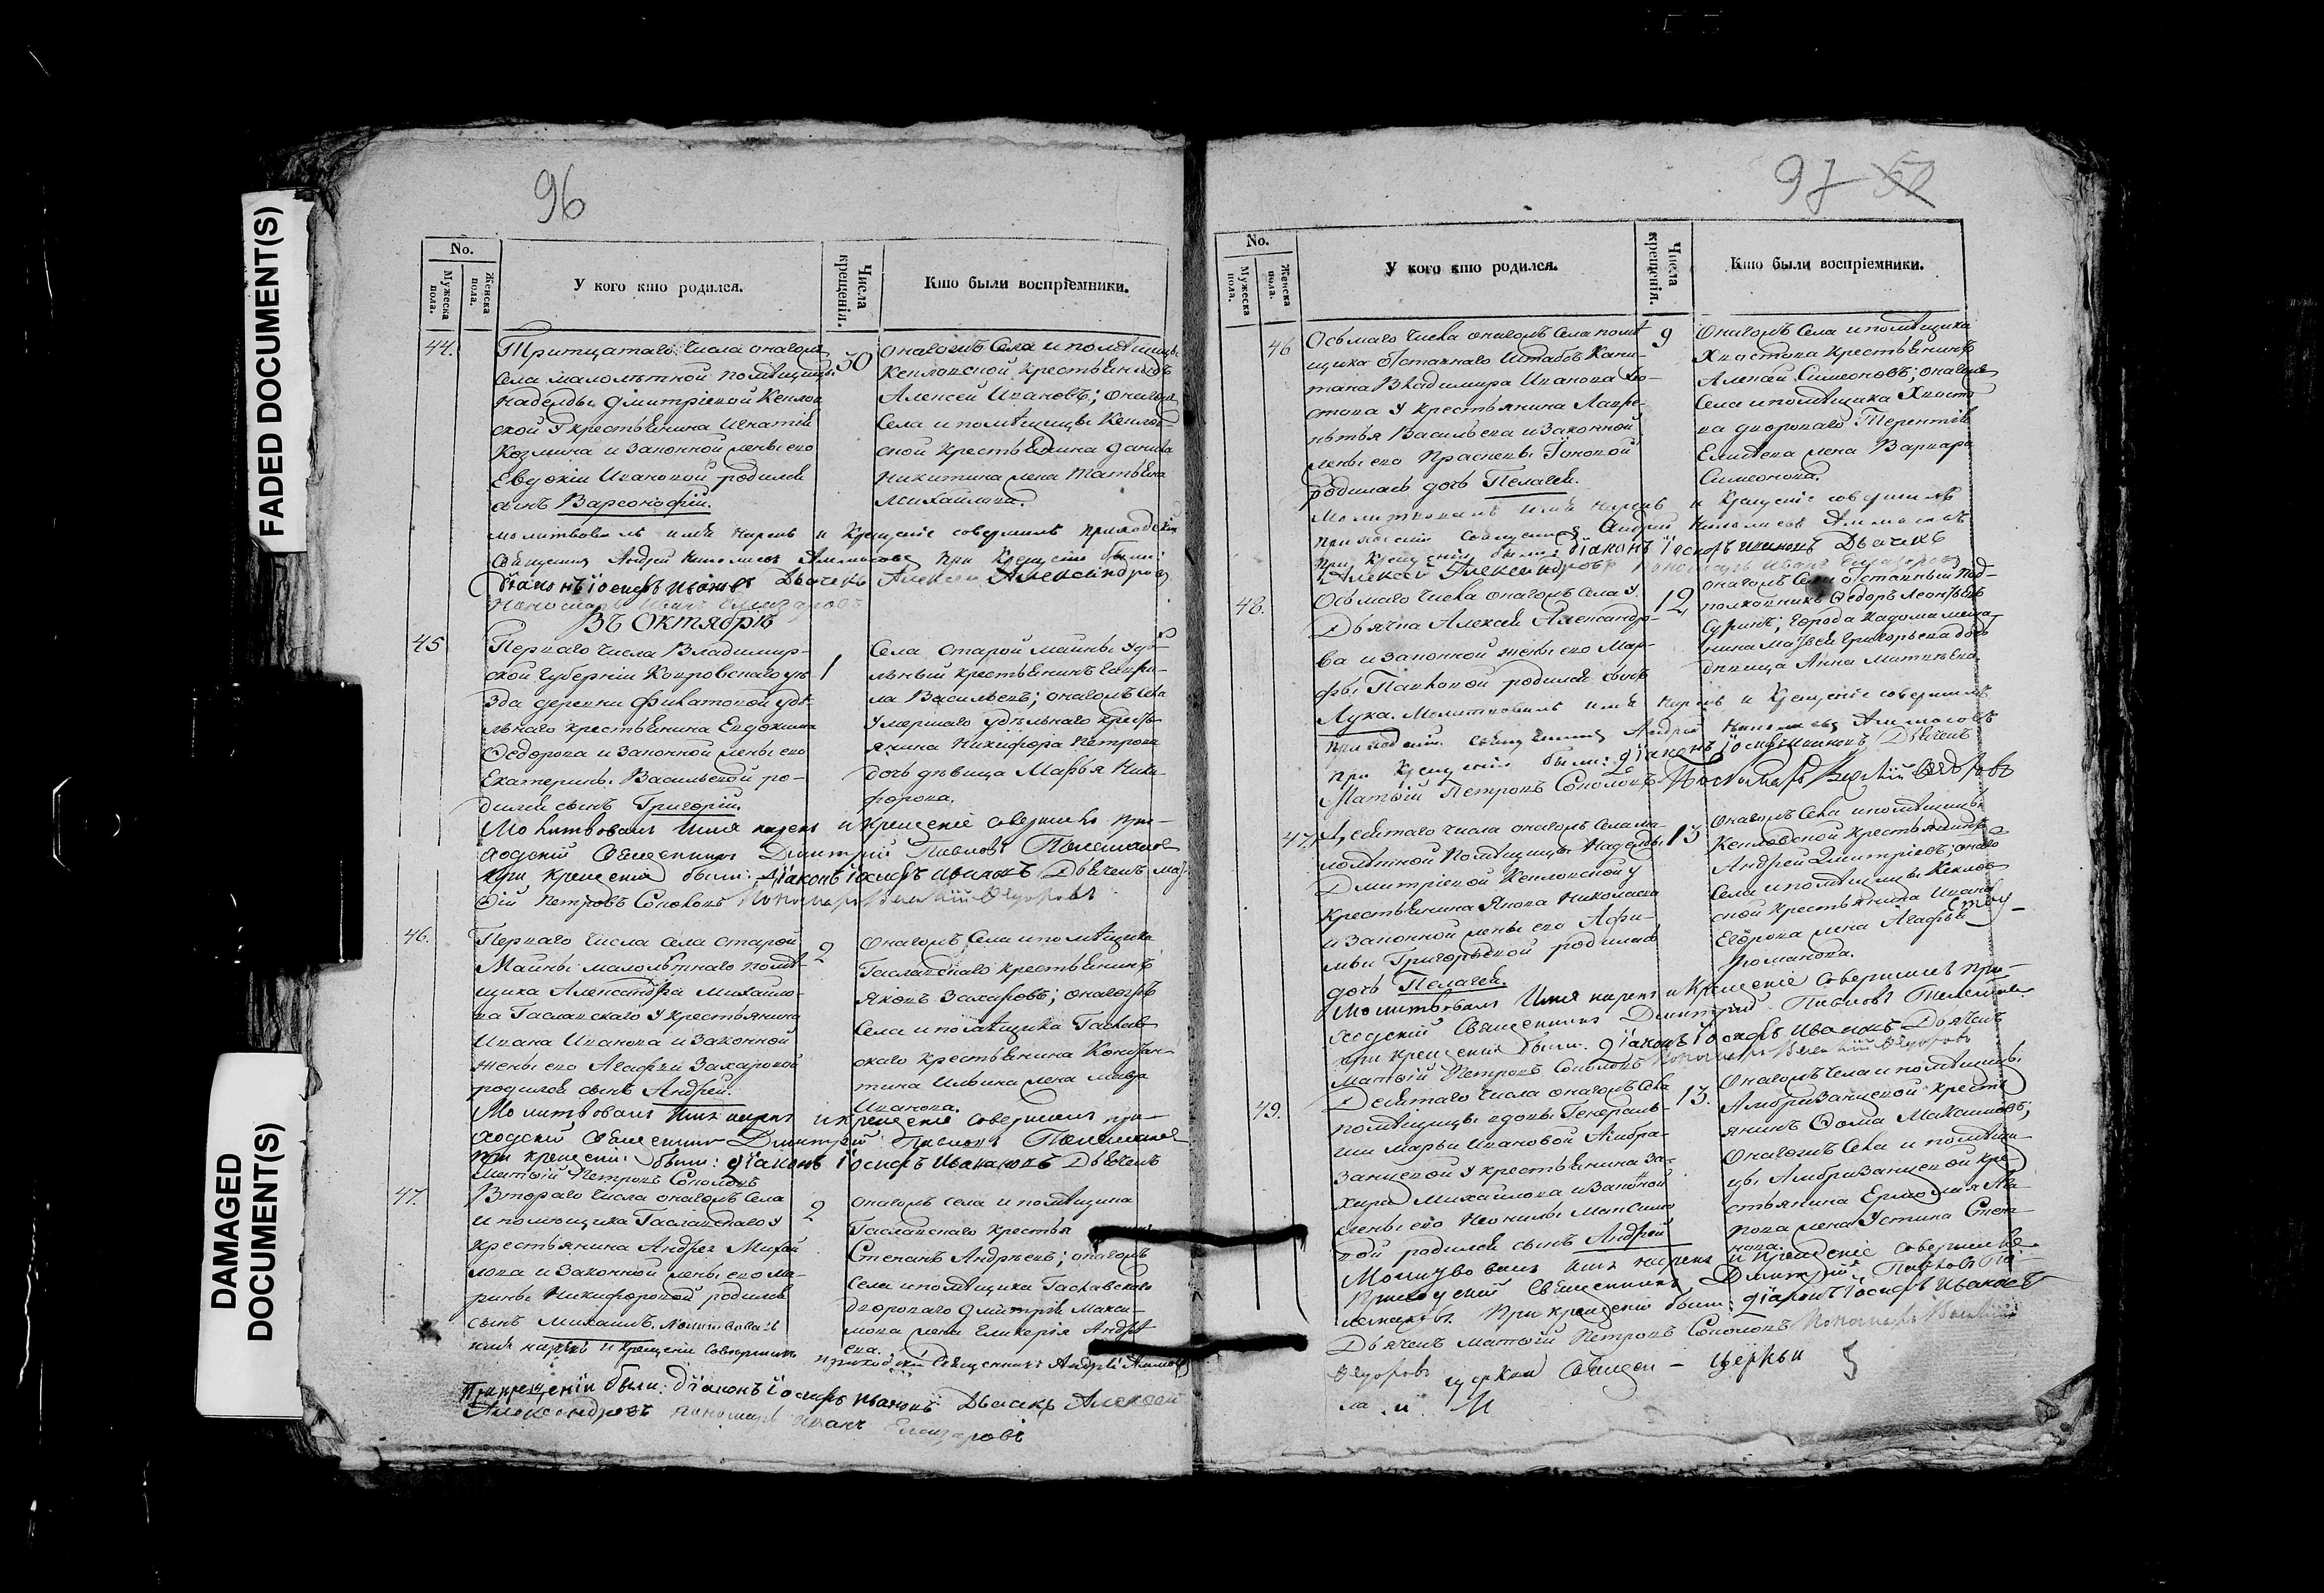 FADED DOCUMENT(S)
DAMAGED
DOCUMENT(S)
96
No.
Мужеска пола.
Женска пола.
У кого кто родился.
Числа крещенія.
Кто были воспріемники.
44.
Тритцатаго числа онагожъ
села малолѣтной помѣщицы
Надежды Дмитріевой
ской у крестьянина Игнатія
Козмина и законной жены его
Евдокіи Ивановой родился
сынъ Варсонофій.
30
онагожъ села и помѣщицы
крестьянинъ
Алексей Ивановъ; онагожъ
села и помѣщицы
ской крестьянина Данила
Никитина жена Татьяна
Михайлова.
молитвовалъ имя нарекъ и крещеніе совершилъ приходскій
священникъ Андрей Николаевъ при крещеніи были:
діаконъ іосифъ ивановъ Дьячекъ Алексей Александровъ
Пономарь Иванъ Елиазаровъ
Въ Октябрѣ
45
Перваго числа Владимир-
ской губерніи Ковровскаго уѣ-
зда деревни Филатовой удѣ-
льнаго крестьянина Евдокима
Ѳедорова и законной жены его
Екатерины Васильевой ро-
дился сынъ Григорій.
1
Села Старой Майны удѣ-
льный крестьянинъ Гаври-
ла Васильевъ; онагожъ села
умершаго удѣльнаго кресть-
янина Никифора Петрова
дочь дѣвица Марья Ники-
форова.
Молитвовалъ имя нарекъ и крещеніе совершилъ при-
ходскій Священникъ Дмитрій Павловъ
при крещеніи были: діаконъ іосифъ ивановъ Дьячекъ мат-
ѳій Петровъ Соколовъ Пономарь Василій Ѳедоровъ
46.
Перваго числа села Старой
Майны малолѣтнаго помѣ-
щика Александра Михайло-
ва у крестьянина
Ивана Иванова и законной
жены его Агафьи Захаровой
родился сынъ Андрей.
2
онагожъ села и помѣщика
крестьянинъ
Яковъ Захаровъ; онагожъ
села и помѣщика
скаго крестьянина Констан-
тина Ильина жена Мавра
Иванова.
Молитвовалъ имя нарекъ и крещеніе совершилъ при-
ходскій Священникъ Дмитрій Павловъ
при крещеніи были: діаконъ іосифъ ивановъ Дьячекъ
Матѳій Петровъ Соколовъ
47.
Втораго числа онагожъ села
и помѣщика у
крестьянина Андрея Михай-
лова и законной жены его Ма-
рины Никифоровой родился
сынъ Михаилъ. Молитвовалъ
имя нарекъ и крещеніе совершилъ приходскій Священникъ Андрей
2
онагожъ села и помѣщика
крестья
Степанъ Андреевъ; онагожъ
села и помѣщика
двороваго Дмитрія Макси-
мова жена Гликерія Андре-
ева.
При крещеніи были: діаконъ іосифъ ивановъ Дьячекъ Алексей
Александровъ пономарь Иванъ Елиазаровъ
97 52
No.
Мужеска пола.
Женска пола.
У кого кто родился.
Числа крещенія.
Кто были воспріемники.
46
Осьмаго числа онагожъ села помѣ-
щика отставнаго Штабсъ Капи-
тана Владимира Иванова Хво-
стова у крестьянина Лавре-
нтья Васильева и законной
жены его Прасковьи
родилась дочь Пелагея.
9
Онагожъ села и помѣщика
Хвостова крестьянинъ
Алексей Симеоновъ; онагожъ
села и помѣщика Хвосто-
ва двороваго Терентія
жена Варвара
Симеонова.
Молитвовалъ имя нарекъ и крещеніе совершилъ
приходскій Священникъ Андрей Николаевъ
при крещеніи были: діаконъ іосифъ ивановъ Дьячекъ
Алексей Александровъ пономарь Иванъ Елиазаровъ
48.
Осьмаго числа онагожъ села у
Дьячка Алексея Александро-
ва и законной жены его Мар-
фы Павловой родился сынъ
Лука. Молитвовалъ имя нарекъ и крещеніе совершилъ
12
онагожъ села отставный Под-
полковникъ Ѳедоръ Леонтьевъ
города Кадома меща-
нина Григорьева дочь
дѣвица Анна Матвѣева.
приходскій священникъ Андрей Николаевъ
при крещеніи были: діаконъ іосифъ ивановъ Дьячекъ
Матѳій Петровъ Соколовъ Пономарь Василій Ѳедоровъ
47.
Десятаго числа онагожъ села ма-
лолѣтной помѣщицы Надежды
Дмитріевой у
крестьянина Якова Николаева
и законной жены его Афи-
мьи Григорьевой родилась
дочь Пелагея.
13
Онагожъ села и помѣщицы
крестьянинъ
Андрей Дмитріевъ; онаго
села и помѣщицы
ской крестьянина Ивана
Егорова жена Агафья
Романова.
Молитвовалъ имя нарекъ и крещеніе совершилъ при-
ходскій Священникъ Дмитрій Павловъ
при крещеніи были: діаконъ іосифъ ивановъ Дьячекъ
Матѳій Петровъ Соколовъ Пономарь Василій Ѳедоровъ
49.
Десятаго числа онагожъ села
помѣщицы вдовы Генераль-
ши Марьи Ивановой Амбра-
занцевой у крестьянина За-
хара Михайлова и законной
жены его Неонилы Максимо-
вой родился сынъ Андрей
13.
Онагожъ села и помѣщицы
Амбразанцевой кресть-
янинъ Ѳома Максимовъ;
Онагожъ села и помѣщи-
цы Амбразанцевой кре-
стьянина Ермолая
жена Устина
Молитвовалъ имя нарекъ и крещеніе совершилъ
приходскій Священникъ Дмитрій Павловъ
при крещеніи были: діаконъ іосифъ ивановъ
Дьячекъ Матѳій Петровъ Соколовъ Пономарь Василій
Ѳедоровъ церкви